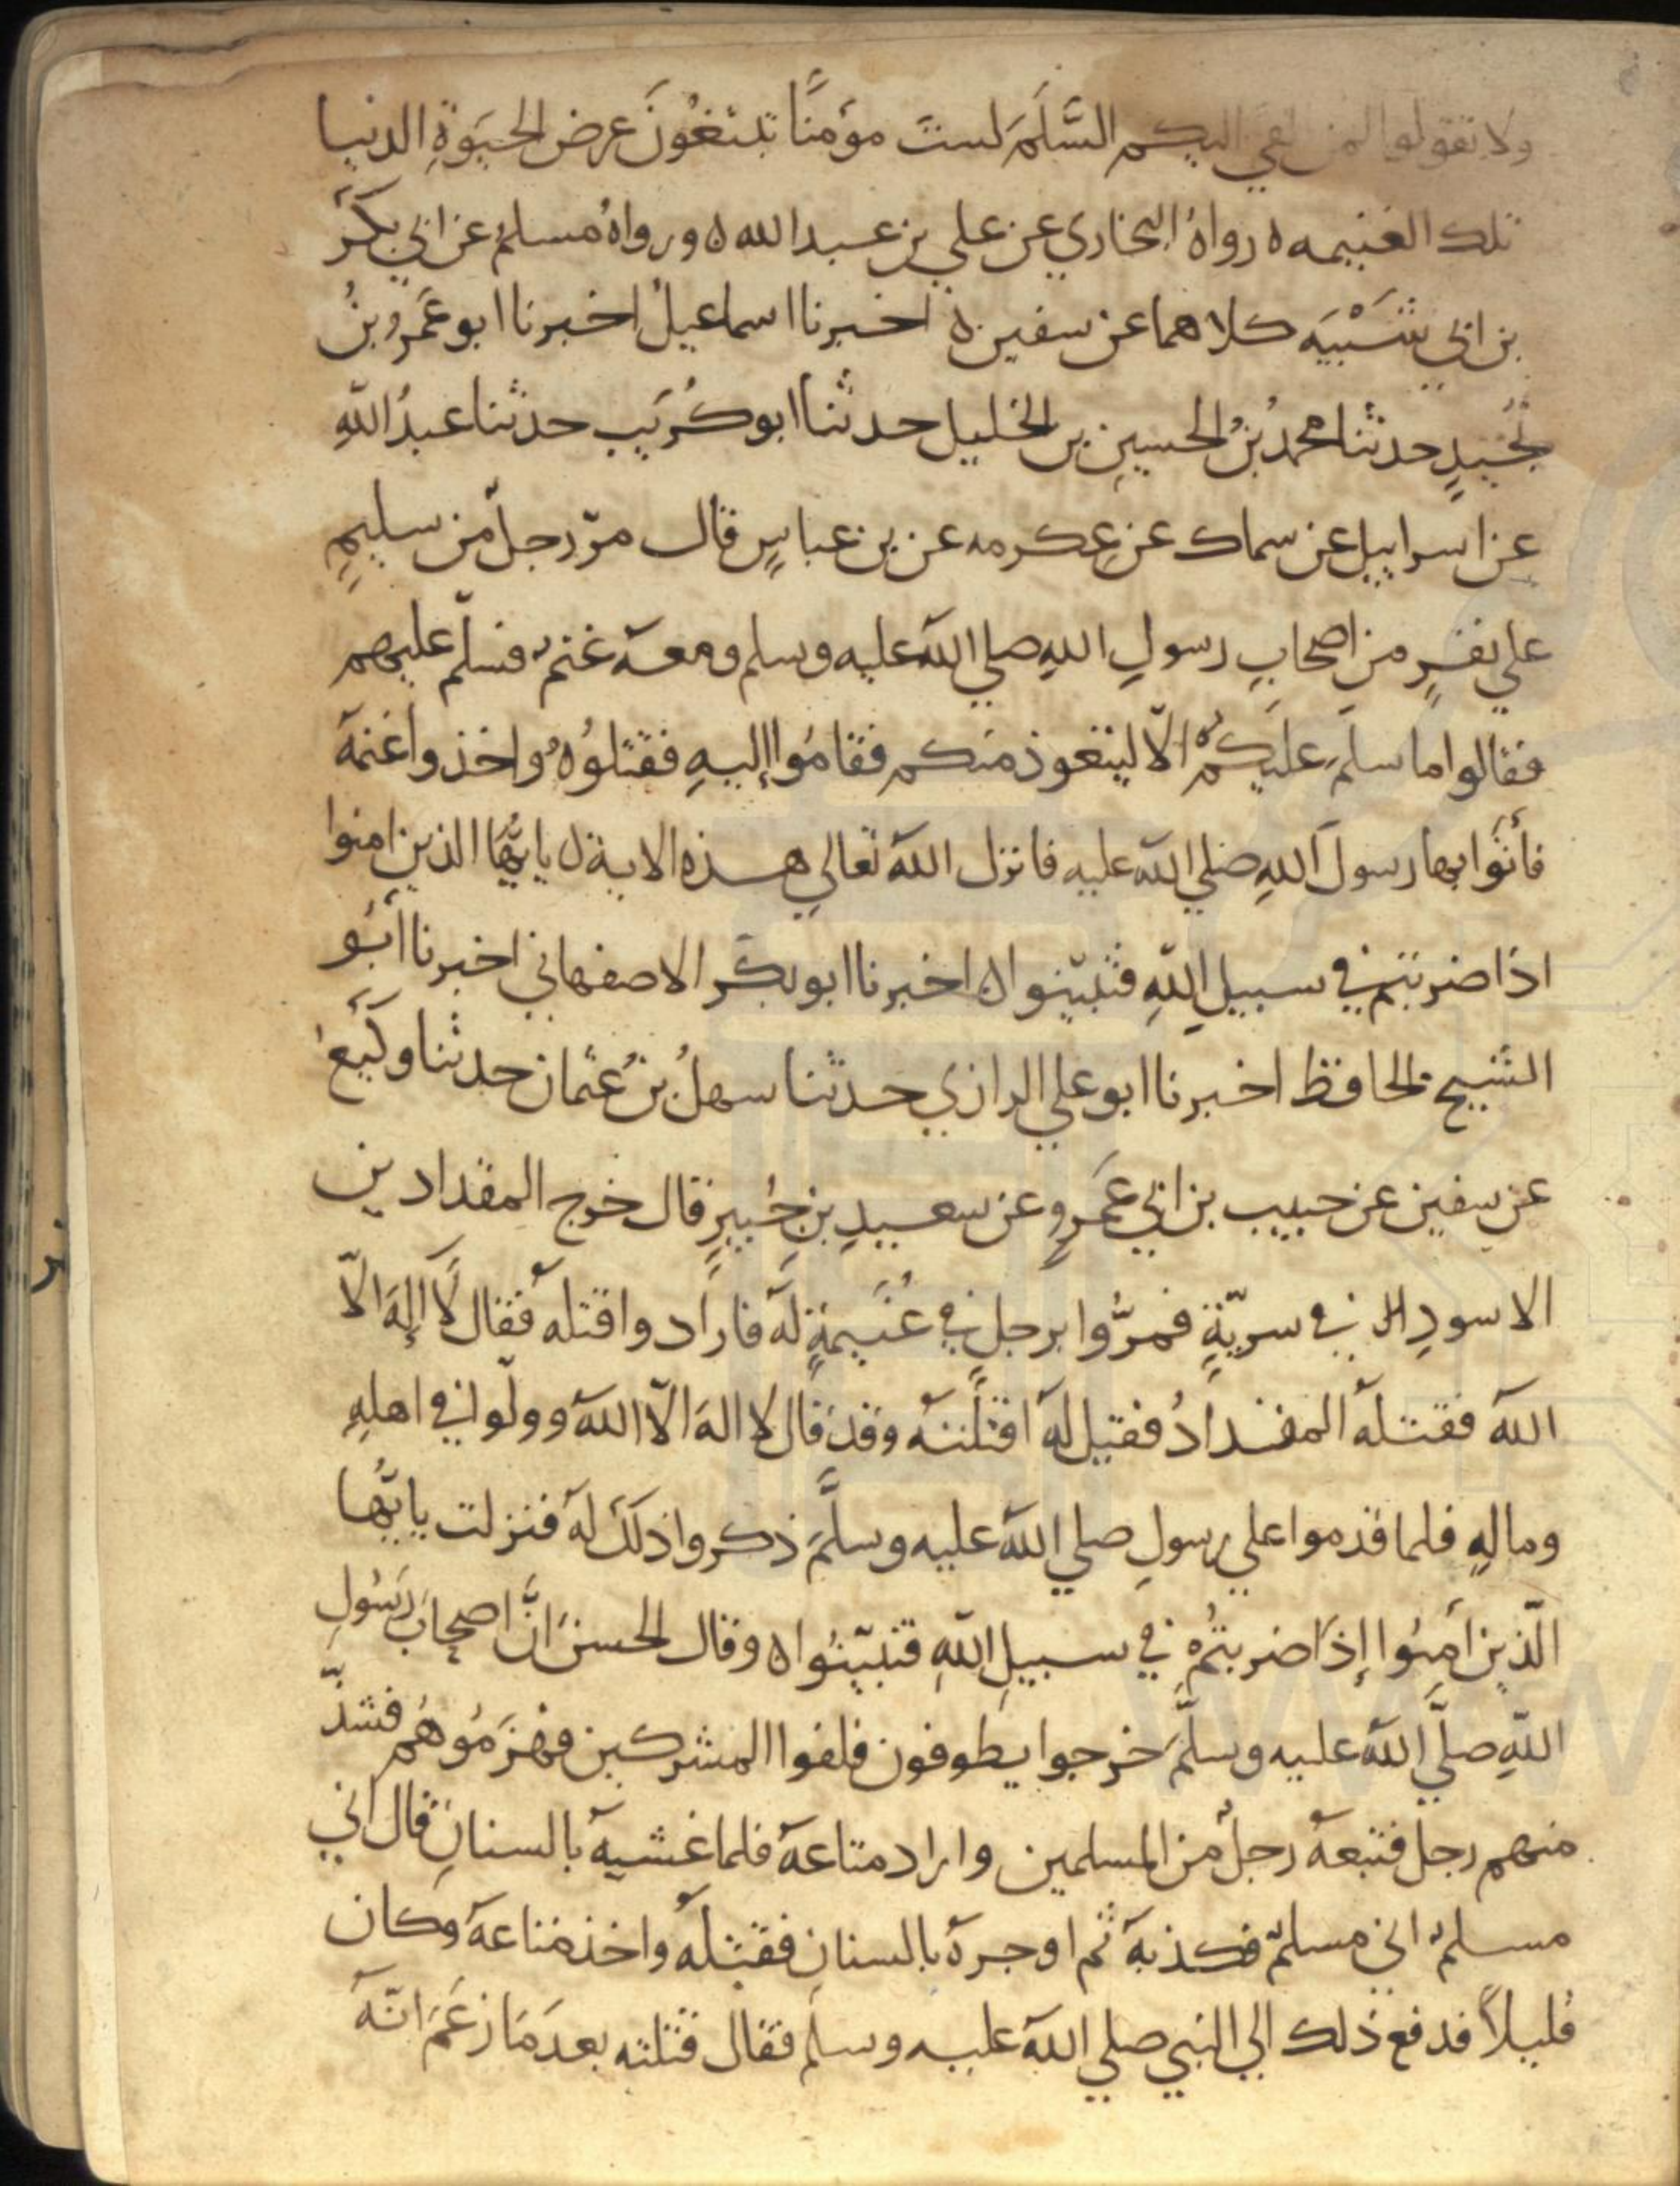 ولا تقولوا لمن القي اليكم السَّلَمَ لستَ مؤمنًا تبتغُونَ عرض الحيَوةِ الدنيا
تلك الغنيمه ه رواهُ البخاري عن علي بن عبد الله ه ورواهُ مسلم عن ابي بكر
بن ابي شَيْبَه كلاهما عن سفين ه اخبرنا اسماعيلُ اخبرنا ابو عَمرو بنُ
نُجَيدٍ حدثنا محمدُ بنُ الحسينِ بن الخليل حدثنا ابو كُرَيب حدثنا عبدُ اللهِ
عن اسراييل عن سماك عن عِكرمه عن بن عباسٍ قال مرّ رجلٌ من سليمٍ
علي نفرٍ من اصحابِ رسولِ اللهِ صلي الله عليه وسلم ومعه غنمٌ فسلّم عليهم
فقالوا ما سلمَ عليكُم الّا ليتعوذ منكم فقامُوا إليهِ فقتلوُهُ واخذوا غنمهَ
فأتَوا بها رسولَ اللهِ صلي الله عليه فانزل الله تعالي هذه الاية ه يايُّها الذين امنوا
اذا ضربتم في سبيلِ اللهِ فتبيّنوا ه اخبرنا ابو بكر الاصفهاني اخبرنا أبُو
الشيخ الحافظ اخبرنا ابو علي الرازي حدثنا سهلُ بنُ عثمان حدثنا وكيعٌ
عن سفين عن حبيب بن ابي عَمرٍو عن سعيدِ بنِ جُبيرٍ قال خرج المقداد بن
الاسودِ في سريّةٍ فمرُّوا برجلٍ في غُنَيمةٍ له فارَادوا قتله فقال لَا إلهَ الّا
الله فقتله المقدادُ فقيل له اقتلتَه وقد قال لا اله الّا الله وولّوا في اهلهِ
ومالهِ فلما قدموا علي رسولِ صلي الله عليه وسلَّمَ ذكروا ذلك له فنزلت يايُّها
الّذين امنُوا إذَا ضربتُم في سبيلِ اللهِ فتبيّنُوا ه وقال الحسن انَّ اصحابَ رَسُولِ
اللهِ صلَّي الله عليه وسلَّمَ خرجوا يطوفون فلقوا المشركين فهزَمُوهُم فشدّ
منهم رجل فتبعه رجلٌ من المسلمين واراد متاعهَ فلما غشيهُ بالسنانِ قال اني
مسلمٌ اني مسلمٌ فكذبه ثم اوجره بالسنانِ فقتلهُ واخذ متاعهَ وكان
قليلاً فدفع ذلك الي النبي صلي الله عليه وسلم فقال قتلته بعدَ مَا زَعَمَ انّه